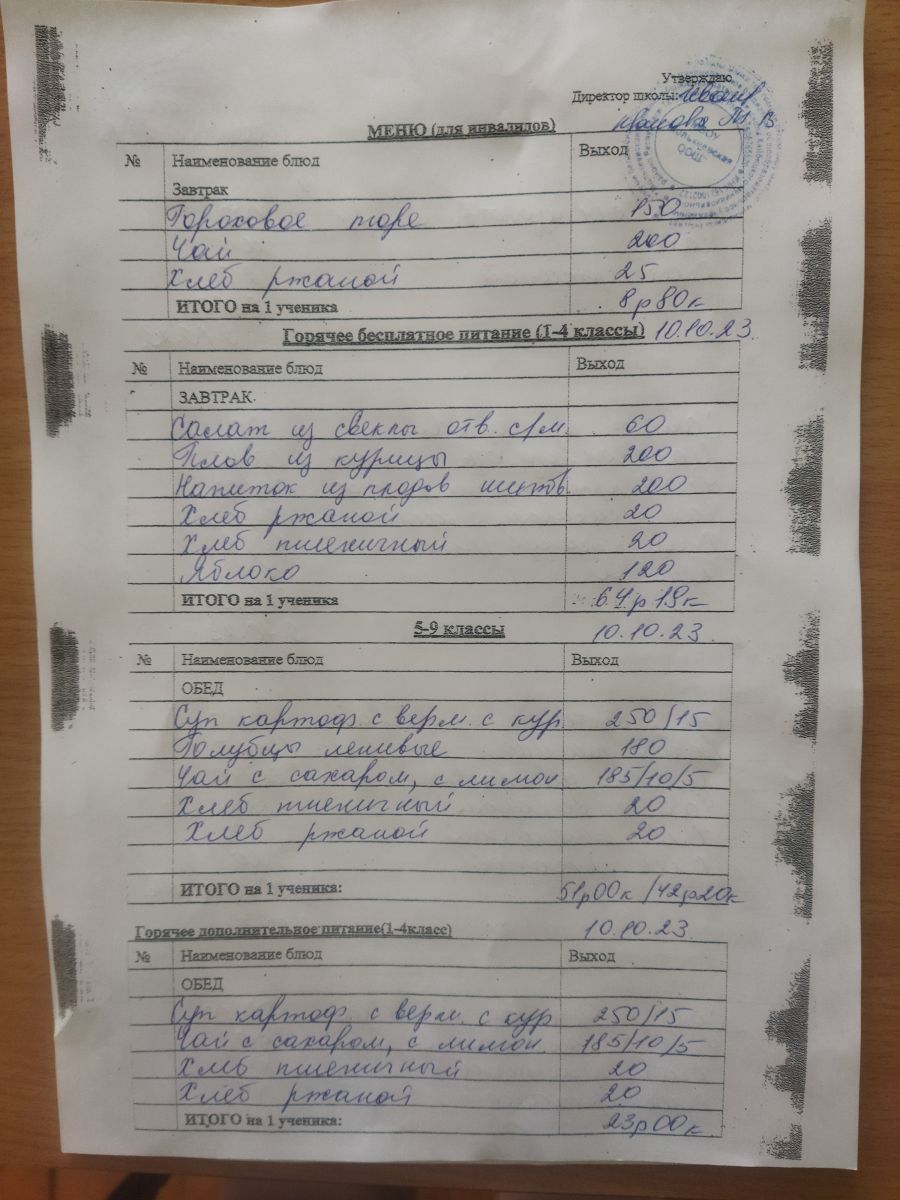 Утверждаю
Директор школы:
МЕНЮ (для инвалидов)
№ Наименование блюд Выход
Завтрак
Гороховое пюре 150
Чай 200
Хлеб ржаной 25
ИТОГО на 1 ученика 8р80к
Горячее бесплатное питание (1-4 классы) 10.10.23
№ Наименование блюд Выход
ЗАВТРАК
Салат из свеклы отв. с/м. 60
Плов из курицы 200
Напиток из плодов 200
Хлеб ржаной 20
Хлеб пшеничный 20
Яблоко 120
ИТОГО на 1 ученика 64р19к
5-9 классы 10.10.23
№ Наименование блюд Выход
ОБЕД
Суп картоф. с верм. с кур 250/15
Голубцы ленивые 180
Чай с сахаром, с лимон 185/10/5
Хлеб пшеничный 20
Хлеб ржаной 20
ИТОГО на 1 ученика: 51р00к /42р20к
Горячее дополнительное питание(1-4класс) 10.10.23
№ Наименование блюд Выход
ОБЕД
Суп картоф. с верм. с кур 250/15
Чай с сахаром, с лимон. 185/10/5
Хлеб пшеничный 20
Хлеб ржаной 20
ИТОГО на 1 ученика: 23р00к